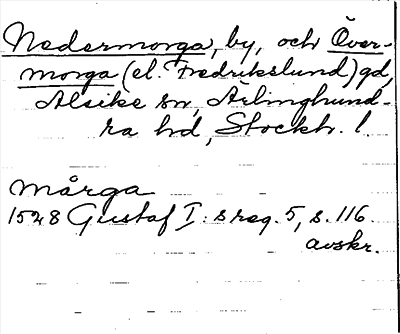 Nedermorga, by, och Över-
morga (el. Fredrikslund) gd,
Alsike sn, Ärlinghund-
ra hd, Stockh. l.
mårga
1528 Gustaf I:s reg. 5, s. 116.
avskr.